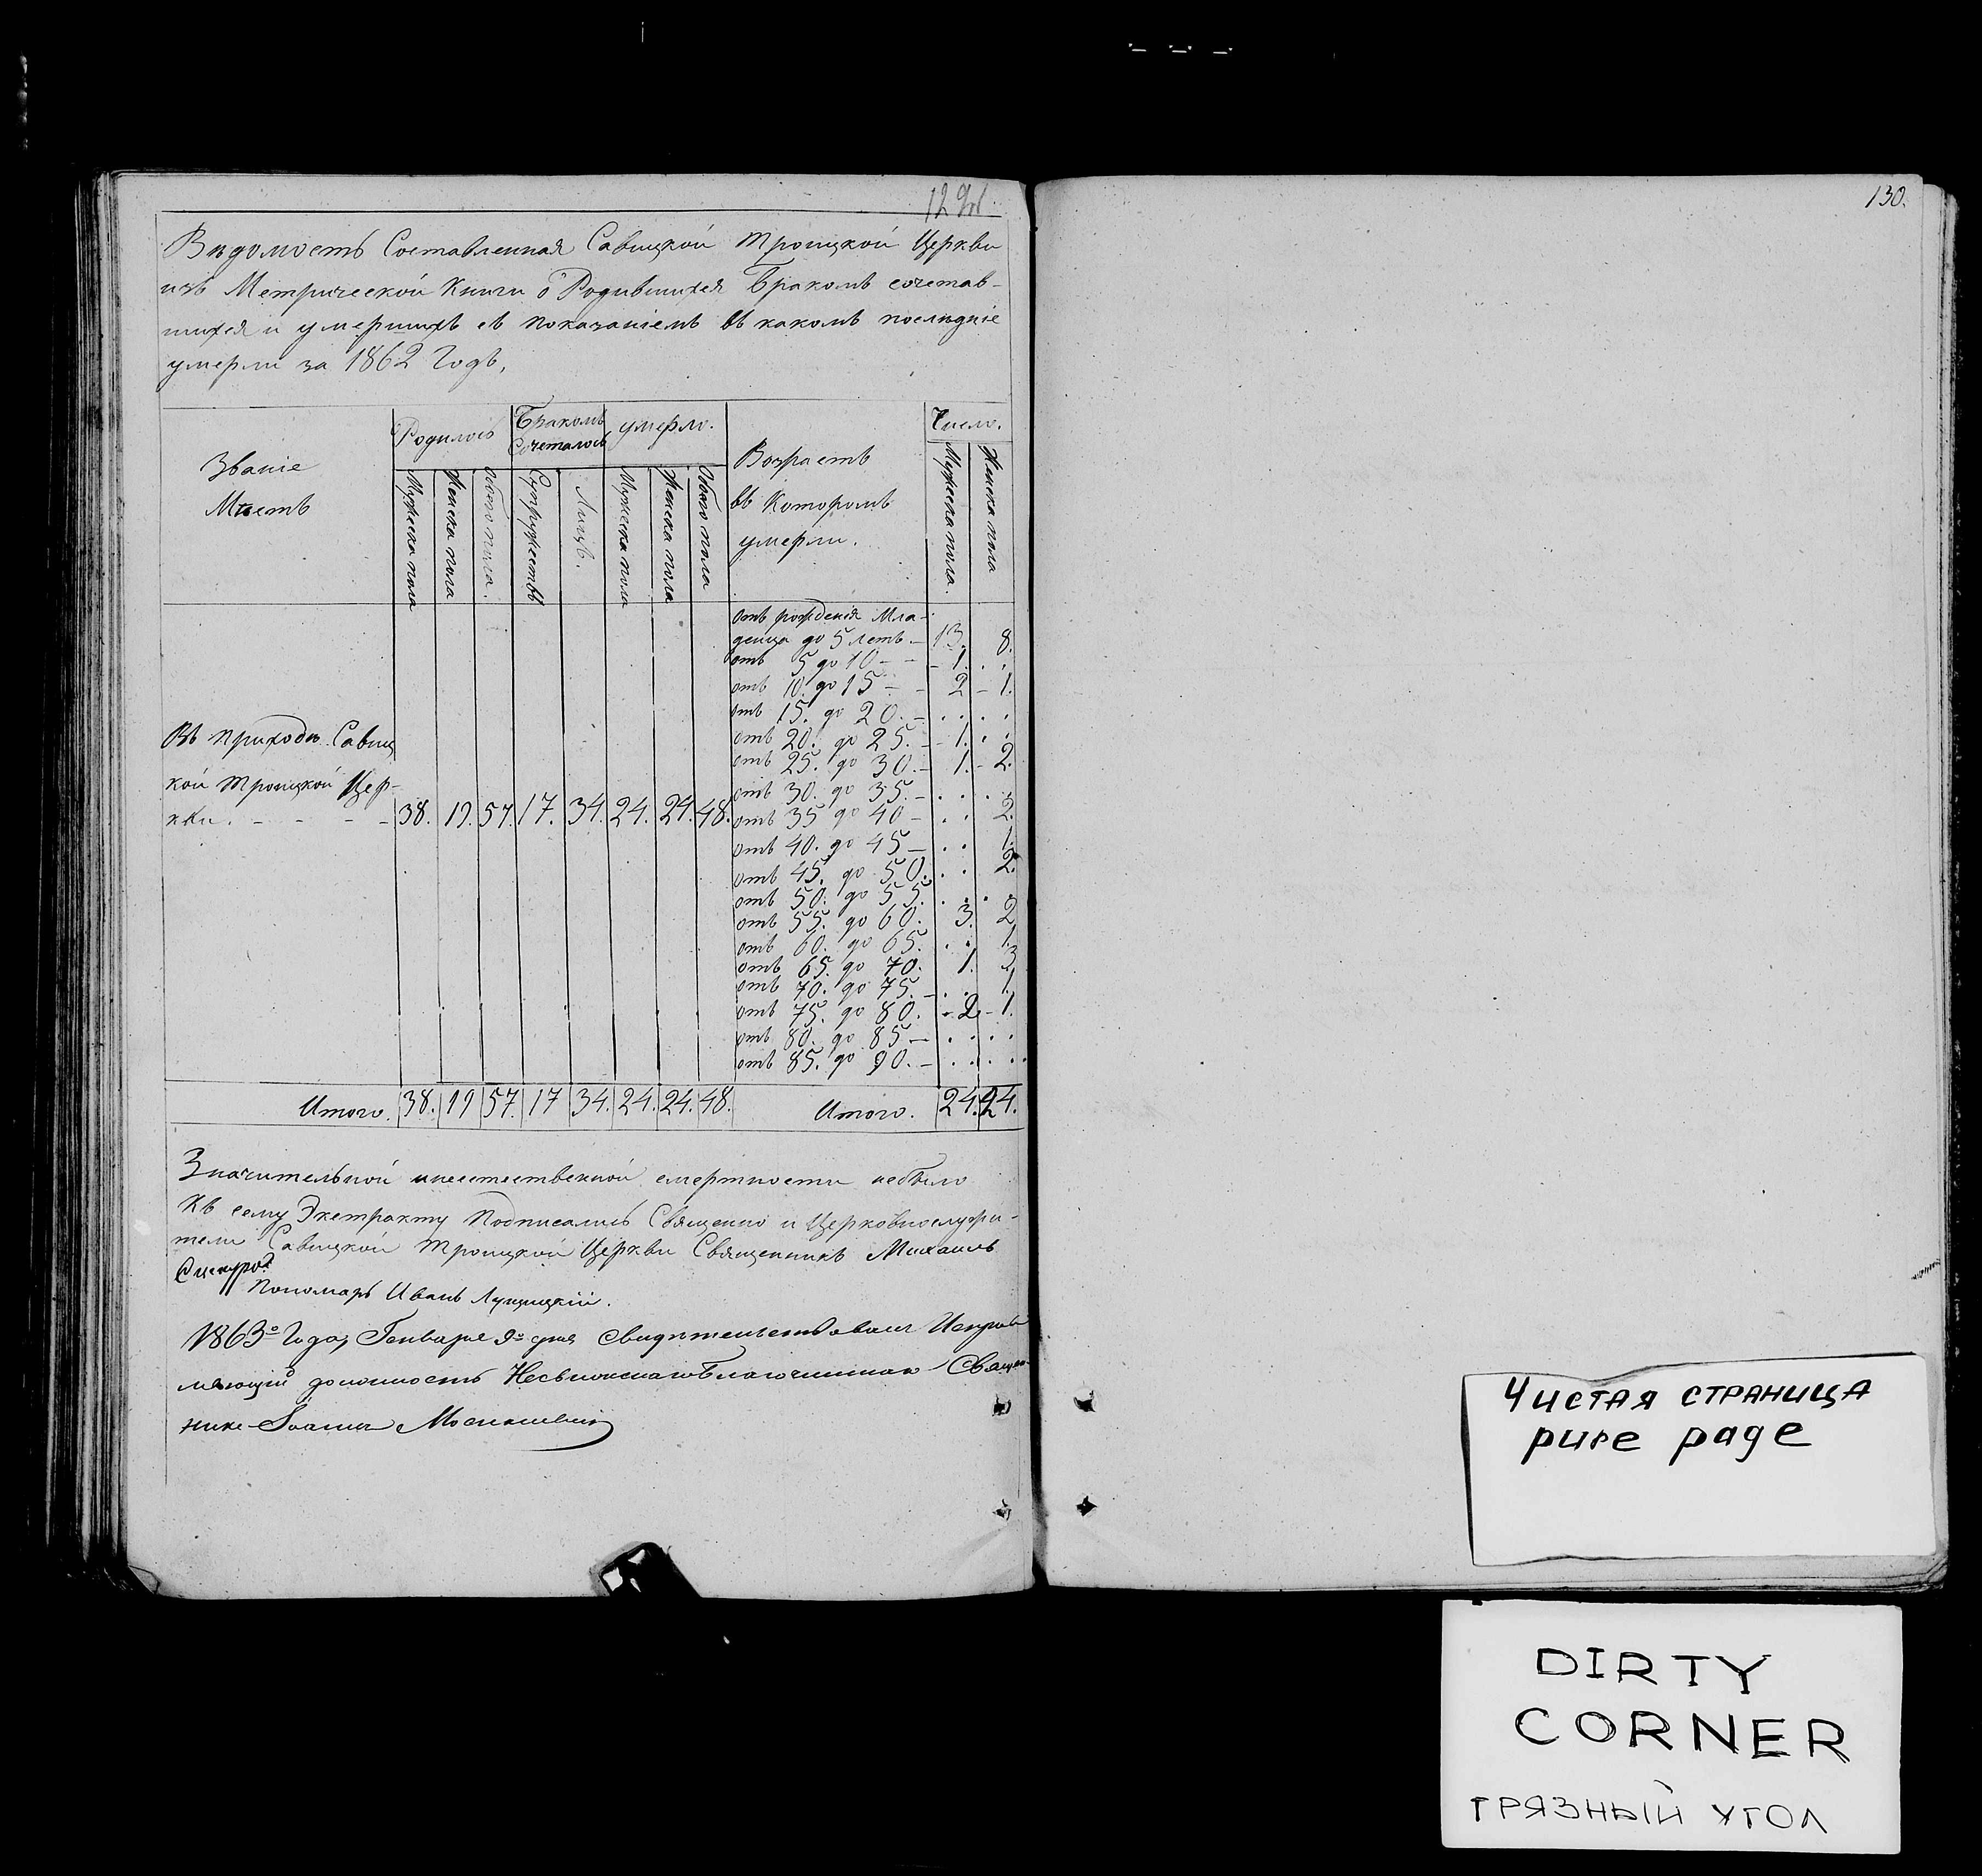 129
130.
Вѣдомость Составленная Савицкой Троицкой Церкви
изъ Метрической Книги о Родившихся Бракомъ сочетав-
шихся и умершихъ съ показаніемъ въ какомъ послѣдніе
умерли за 1862 Годъ,
Званіе
Мѣстъ
Родилось
Бракомъ
Сочеталось
умерло.
Возрастъ
въ Которомъ
умерли.
Число.
Мужеска пола
Женска пола
Обоего пола.
Супружествъ
Лицъ.
Мужеска пола
Женска пола
Обоего пола
Мужеска пола.
Женска пола
отъ рожденія Мла-
денца до 5 летъ – 13. 8.
отъ 5 до 10 – – 1. . .
отъ 10. до 15 – – 2 – 1.
отъ 15. до 20. – . . . .
отъ 20. до 25. – 1. . .
отъ 25. до 30. – 1. – 2.
отъ 30. до 35. – . . . .
отъ 35 до 40 – . . 2.
отъ 40. до 45 – . . 1.
отъ 45. до 50. . . 2.
отъ 50. до 55. . . . .
отъ 55. до 60. 3. 2
отъ 60. до 65. . . 1.
отъ 65. до 70. 1. 3
отъ 70. до 75. – . . 1.
отъ 75. до 80. - 2 – 1.
отъ 80. до 85 – . . . .
отъ 85. до 90. – . . . .
Въ приходѣ Савиц
кой Троицкой Цер-
кви. – – – – 38. 19. 57. 17. 34. 24. 24. 48.
Итого. 38. 19 57. 17 34. 24. 24. 48. Итого. 24. 24.
Значительной инеестественной смертности небыло
Къ сему Экстракту Подписались Священно и Церковнослужи-
тели Савицкой Троицкой Церкви Священникъ Михаилъ
Пономарь Иванъ
1863º Года, Генваря 9º дня Свидѣтельствовалъ Исправ
ляющій должность Несвижскаго Благочиннаго Свящ
никъ Іоаннъ
Чистая страница
pure page
DIRTY
CORNER
ГРЯЗНЫЙ УГОЛ